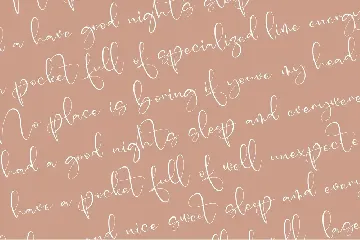 a have good nights sleep
a pocket full of specialized lime energ
No place is boring if youve my head
had a good nights sleep and everywere
have a pocket full of well unexpecte
and nice swet sleep and ever